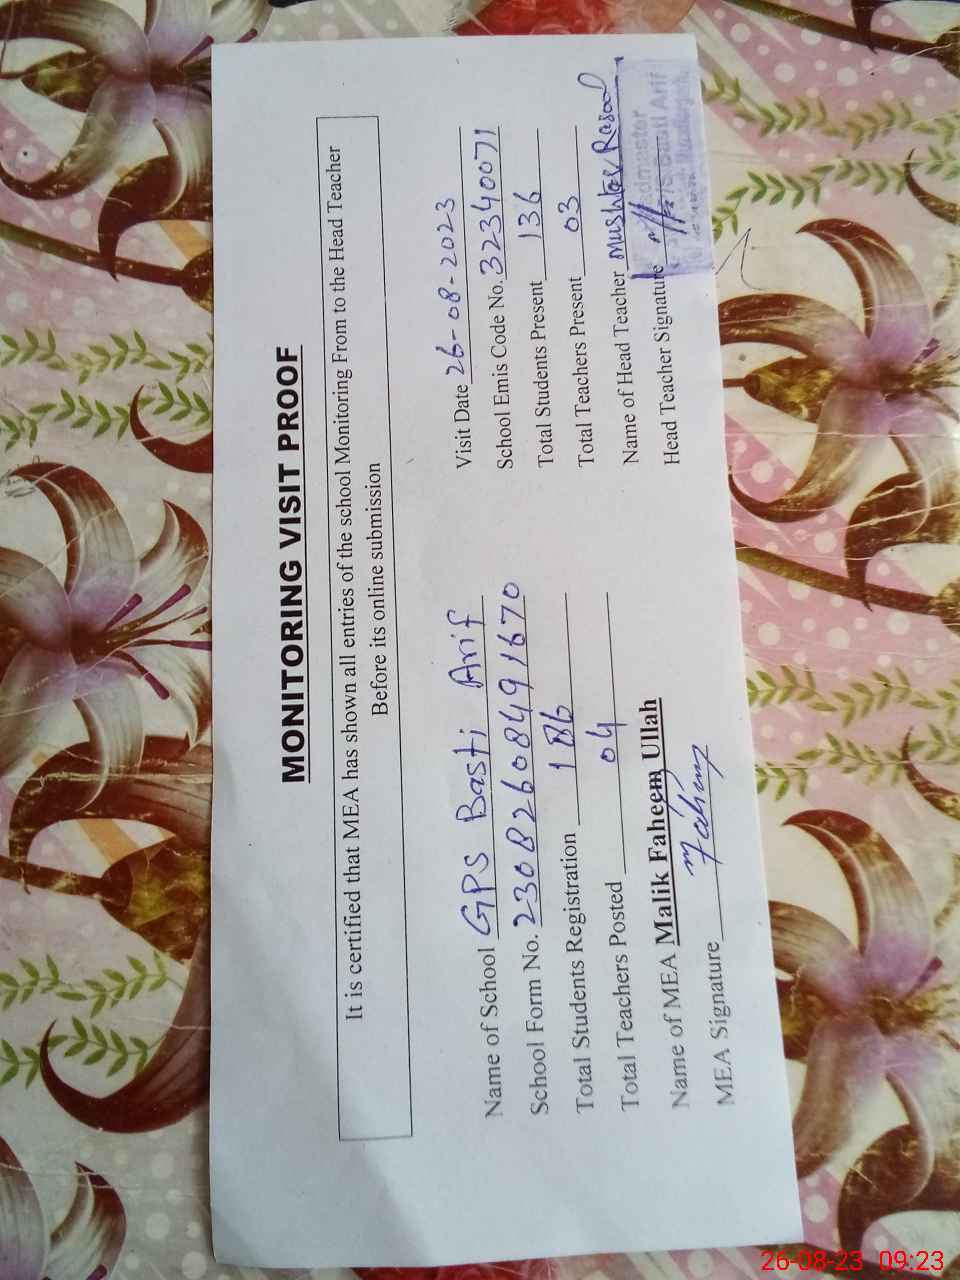 MONITORING VISIT PROOF
It is certified that MEA has shown all entries of the school Monitoring From to the Head Teacher
Before its online submission
Name of School GPS Basti Arif
Visit Date 26-08-2023
School Form No. 23082608491670
School Emis Code No. 32340071
Total Students Registration 186
Total Students Present 136
Total Teachers Posted 04
Total Teachers Present 03
Name of MEA Malik Faheem Ullah
Name of Head Teacher Mushtaq Rasool
MEA Signature Faheem
Head Teacher Signature
Headmaster
Basti Arif
26-08-23 09:23